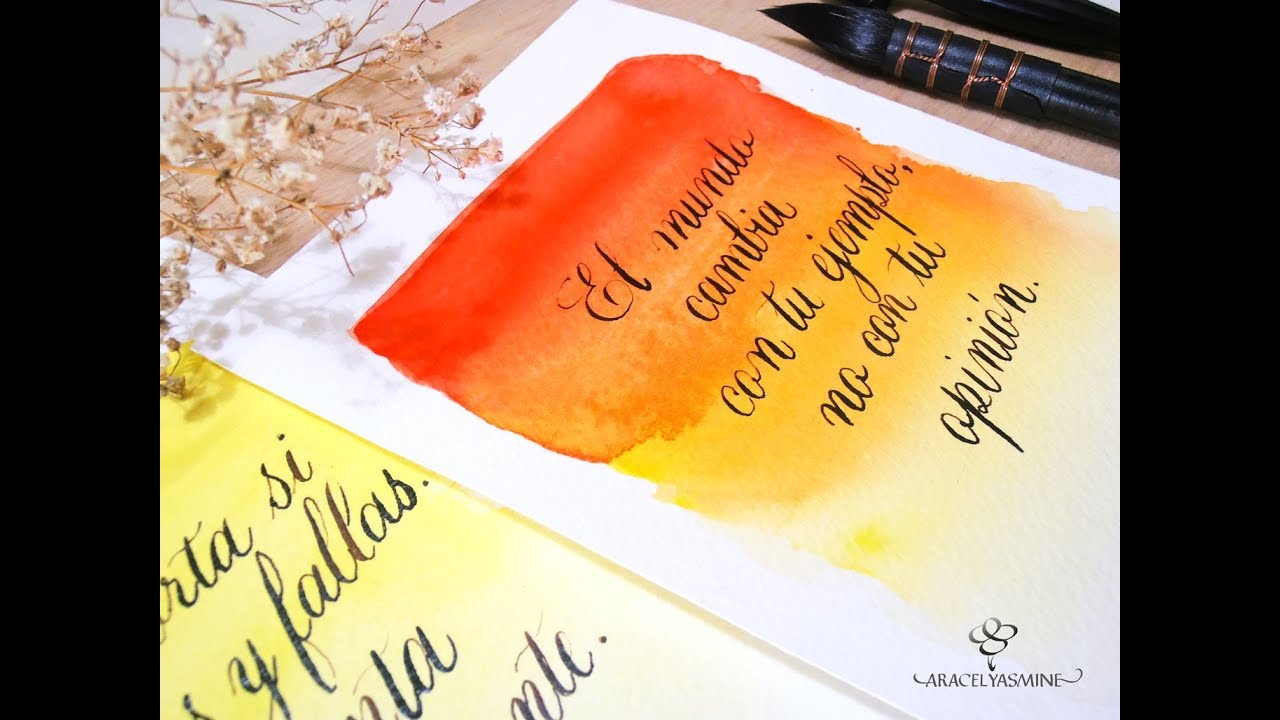 El mundo
cambia
con tu ejemplo,
no con tu
opinión.
si
y fallas.
ARACELYASMINE